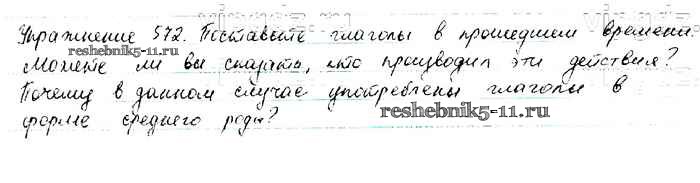 Упражнение 572. Поставьте глаголы в прошедшем времени.
reshebnik5-11.ru
Можете ли вы сказать, кто производил эти действия?
Почему в данном случае употреблены глаголы в
reshebnik5-11.ru
форме среднего рода?